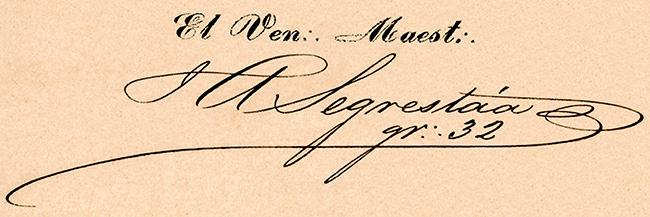 El Ven∴ Maest∴
J A Segrestáa
gr∴ 32